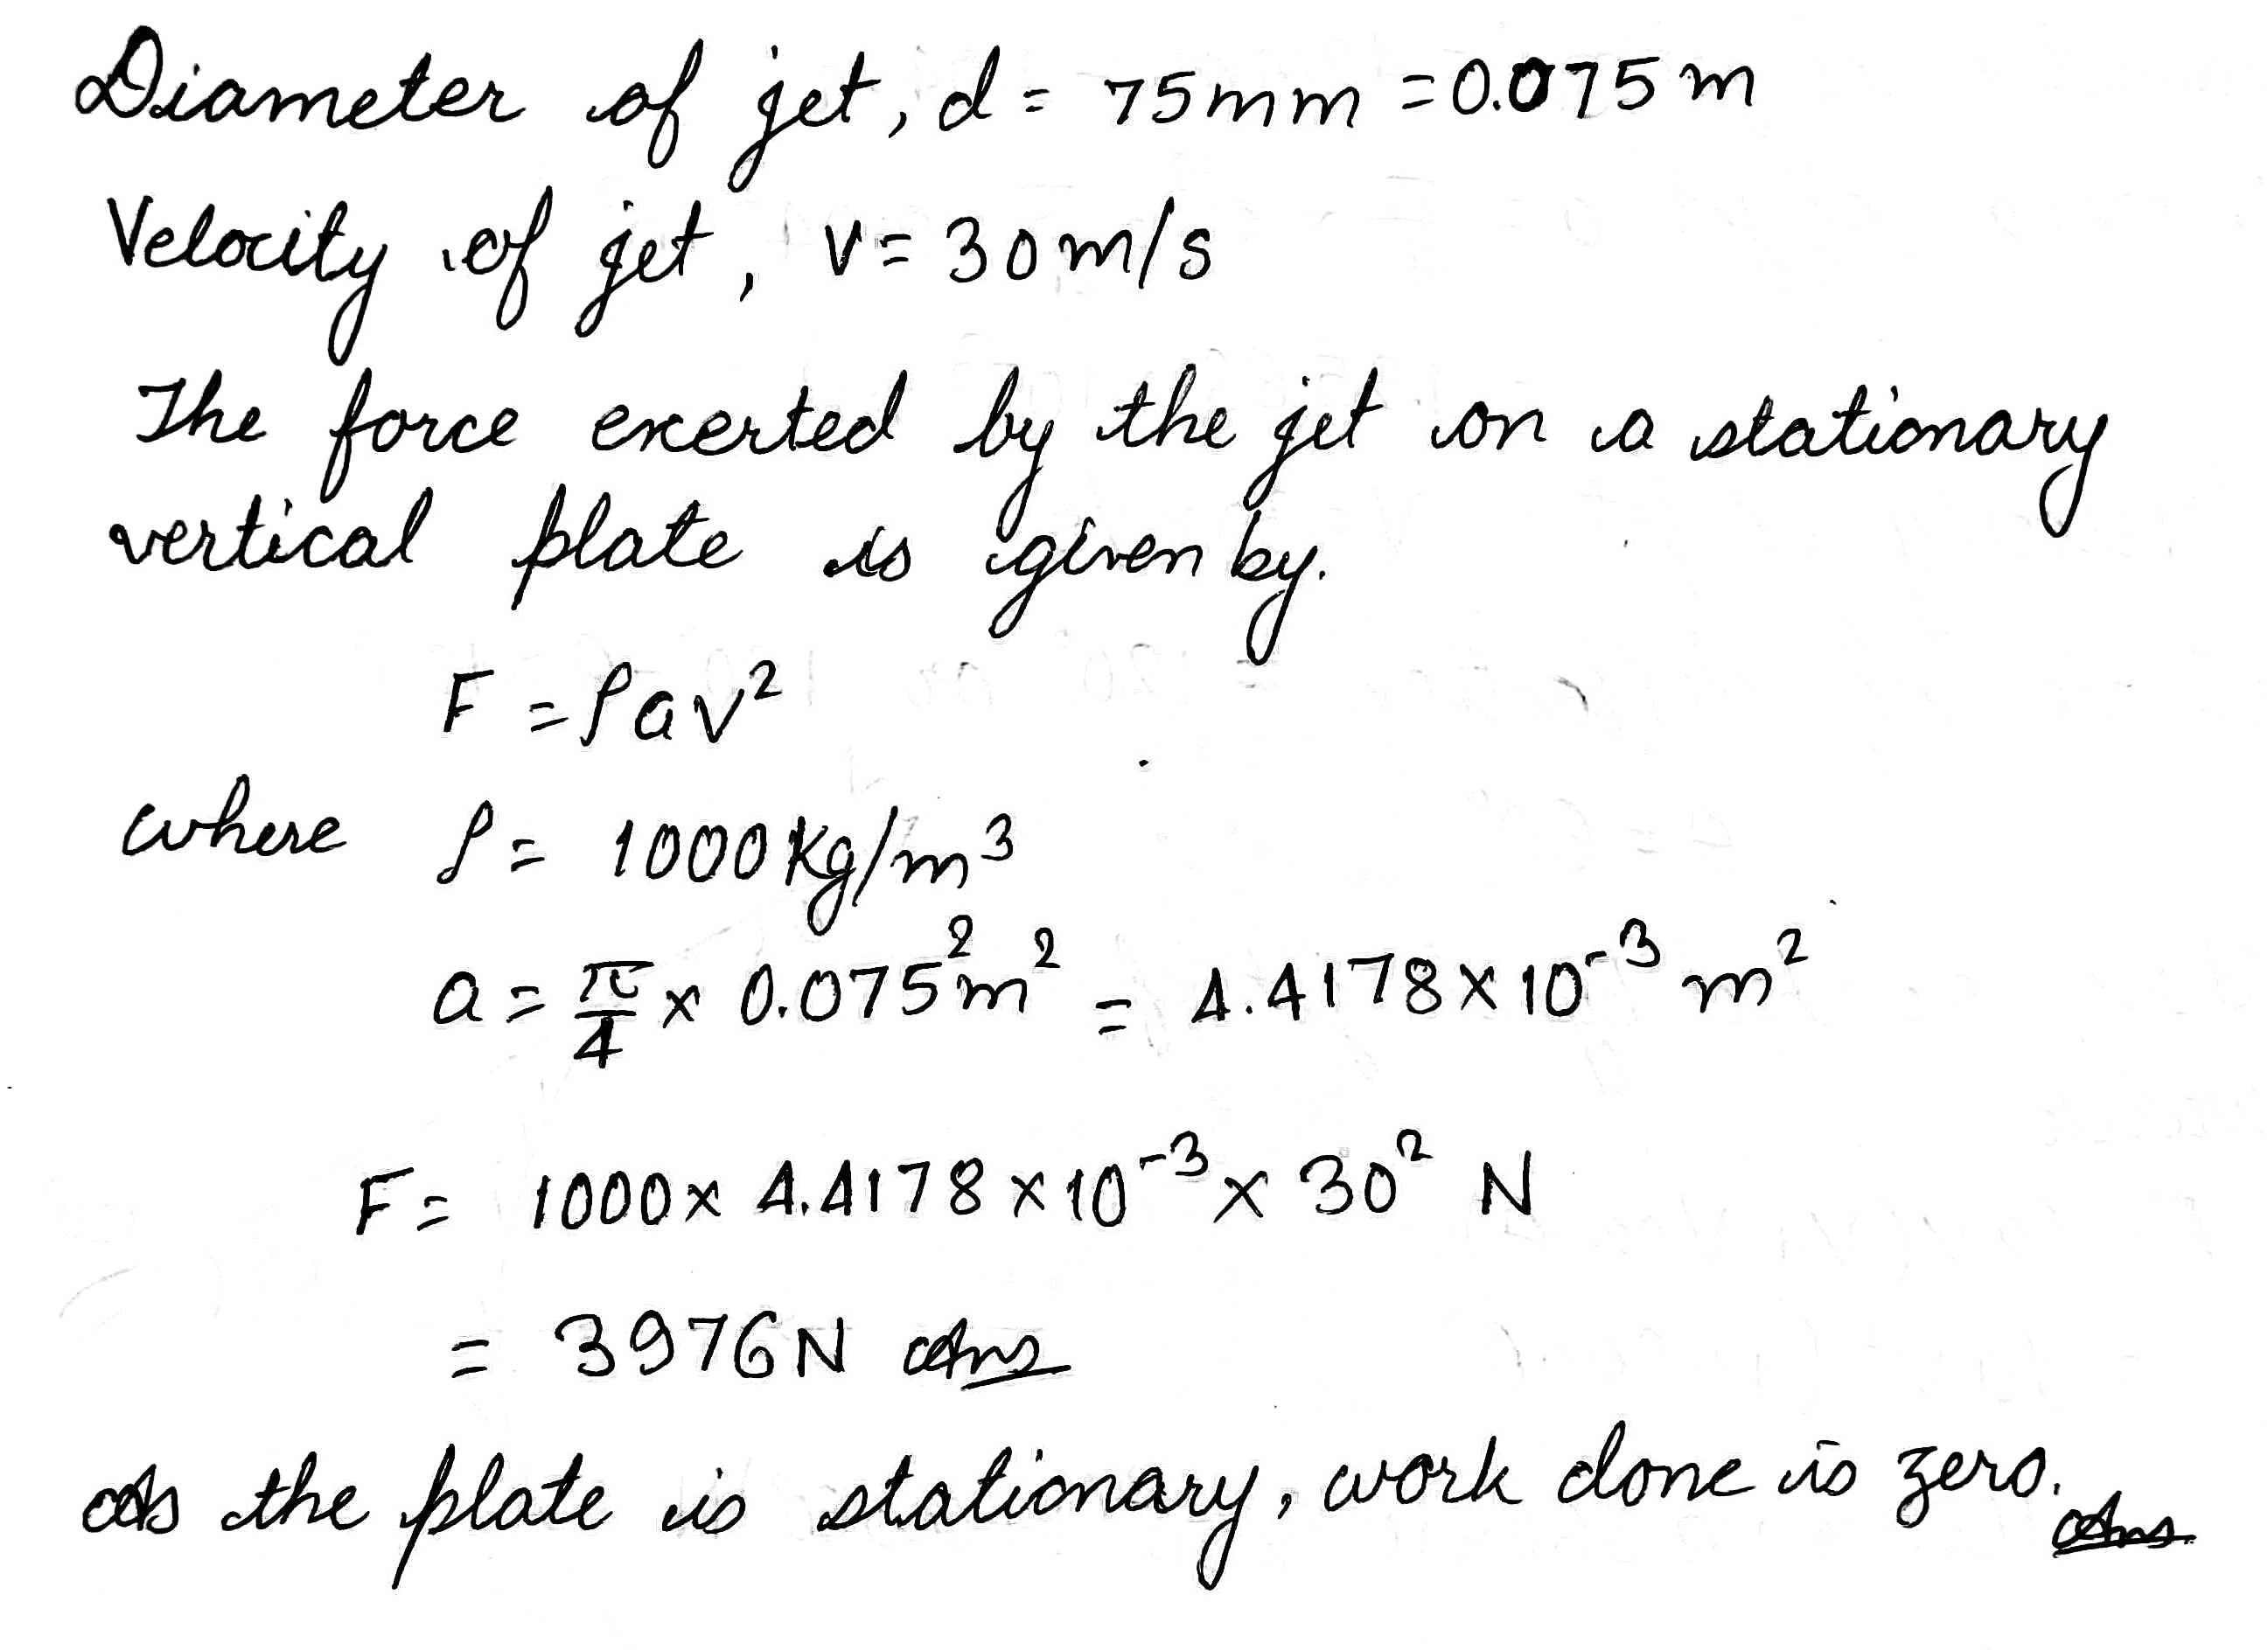 Diameter of jet, d = 75mm = 0.075 m
Velocity of jet, v = 30 m/s
The force exerted by the jet on a stationary
vertical plate is given by.
F = ρav²
where ρ = 1000 Kg/m³
a = π/4 × 0.075² m² = 4.4178 × 10⁻³ m²
F = 1000 × 4.4178 × 10⁻³ × 30² N
= 3976 N Ans
As the plate is stationary, work done is zero. Ans.